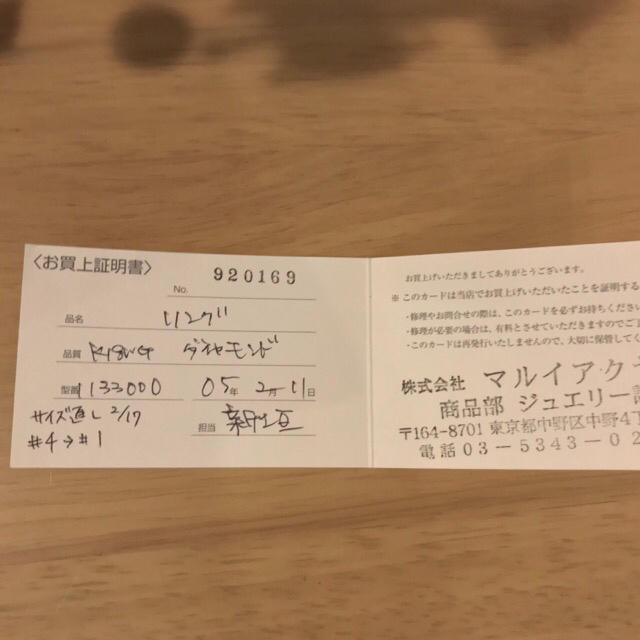 〈お買上証明書〉
No. 920169
品名 リング
品質 K18WG ダイヤモンド
型番 133000 05年 2月 11日
サイズ直し 2/17
#4→#1
担当
お買上げいただきましてありがとうございます。
※このカードは当店でお買上げいただいたことを証明する
・修理やお問合せの際は、このカードを必ずお持ちくださ
・修理が必要の場合は、有料とさせていただきますのでご
・このカードは再発行いたしませんので、大切に保管してく
株式会社 マルイアク
商品部 ジュエリー
〒164-8701 東京都中野区中野4丁
電話 03-5343-02